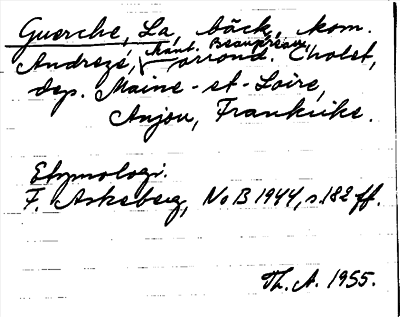 Guerche, La, bäck, kom.
Andrezé, kant. Beaupréau, arrond. Cholet,
dep. Maine-et-Loire,
Anjou, Frankrike.
Etymologi.
F. Askeberg, NoB 1944, s. 182 ff.
Th. A. 1955.